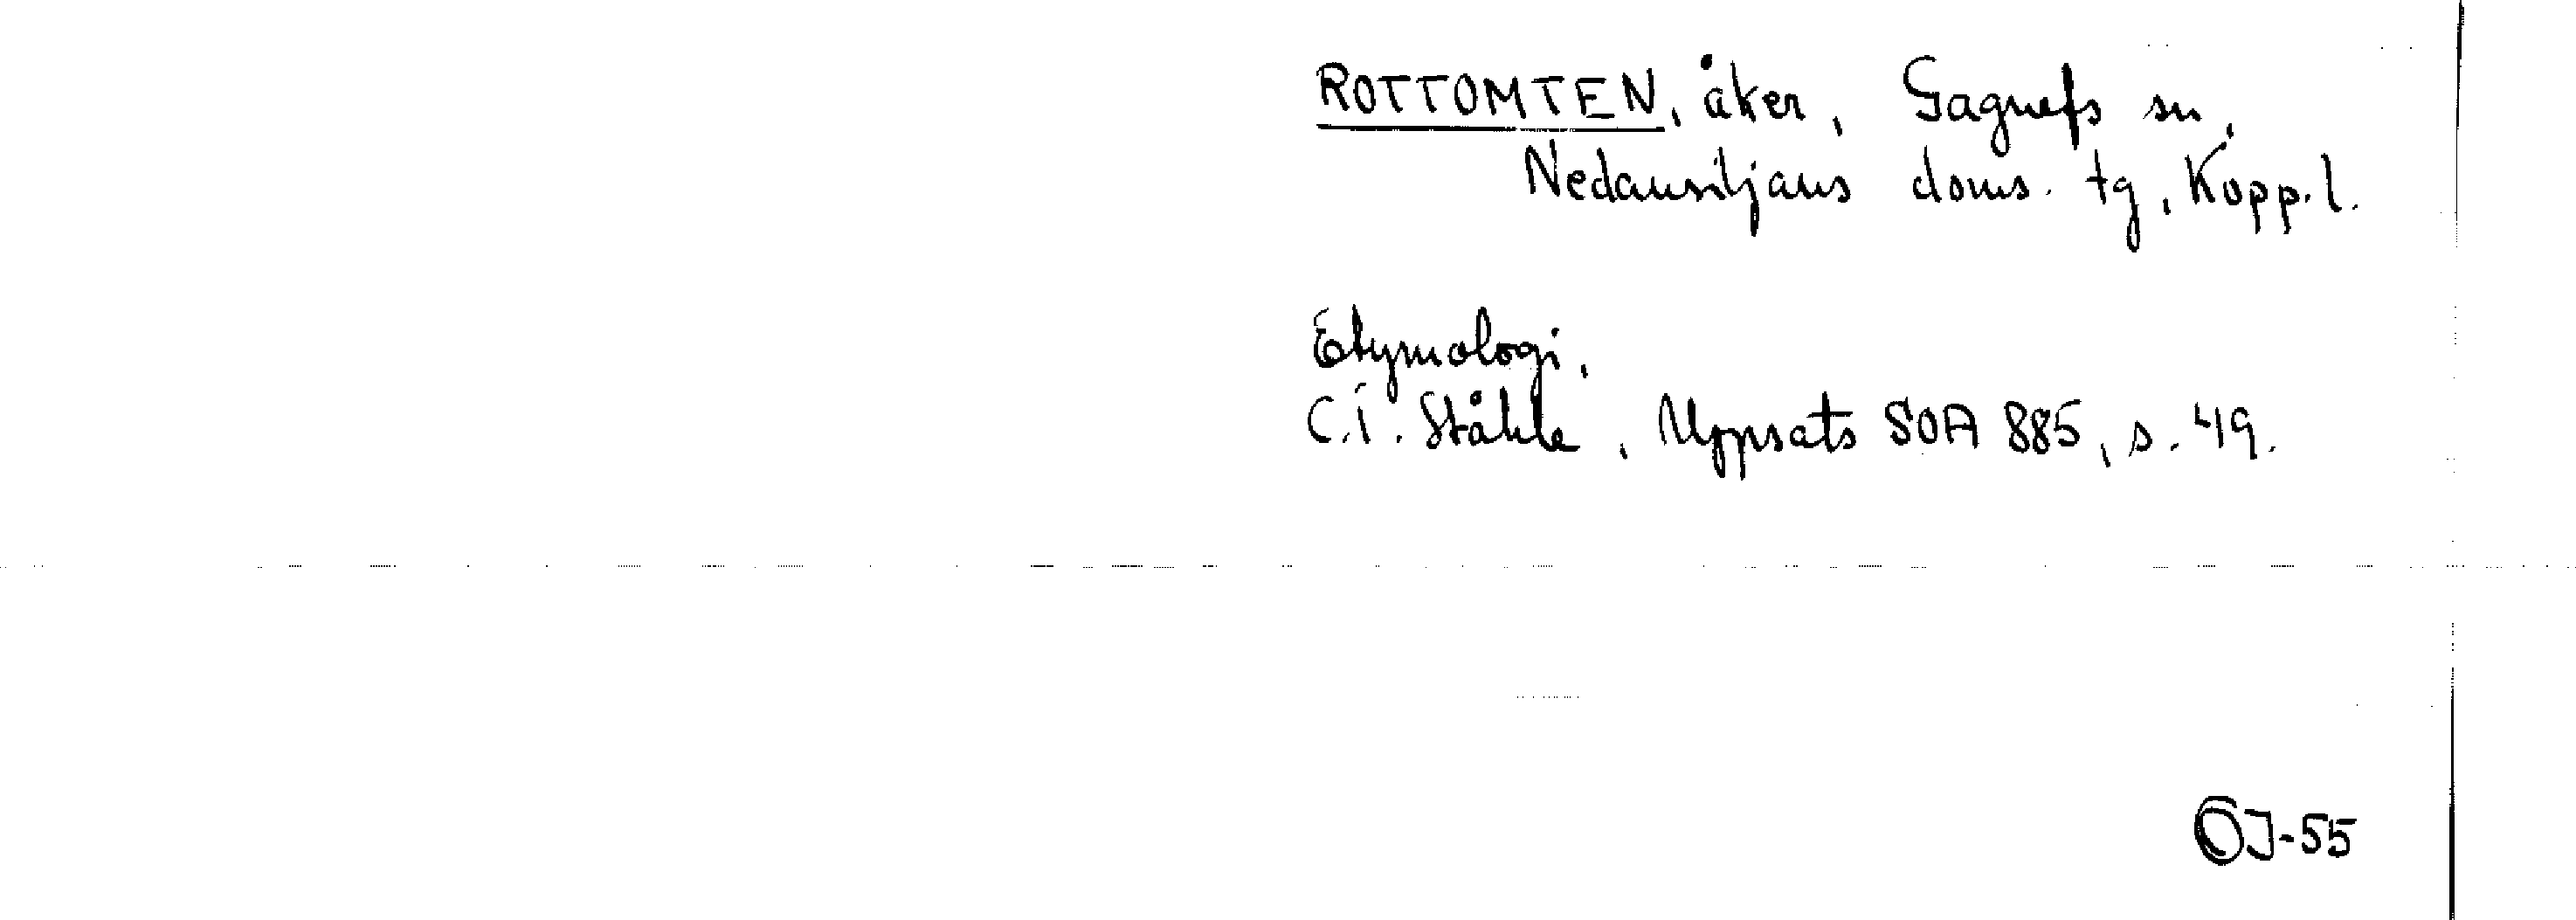 ROTTOMTEN, åker, Gagnefs sn,
Nedansiljans doms. tg, Kopp. l.
Etymologi,
C.I. Ståhle, Uppsats SOA 885, s. 49.
OJ-55